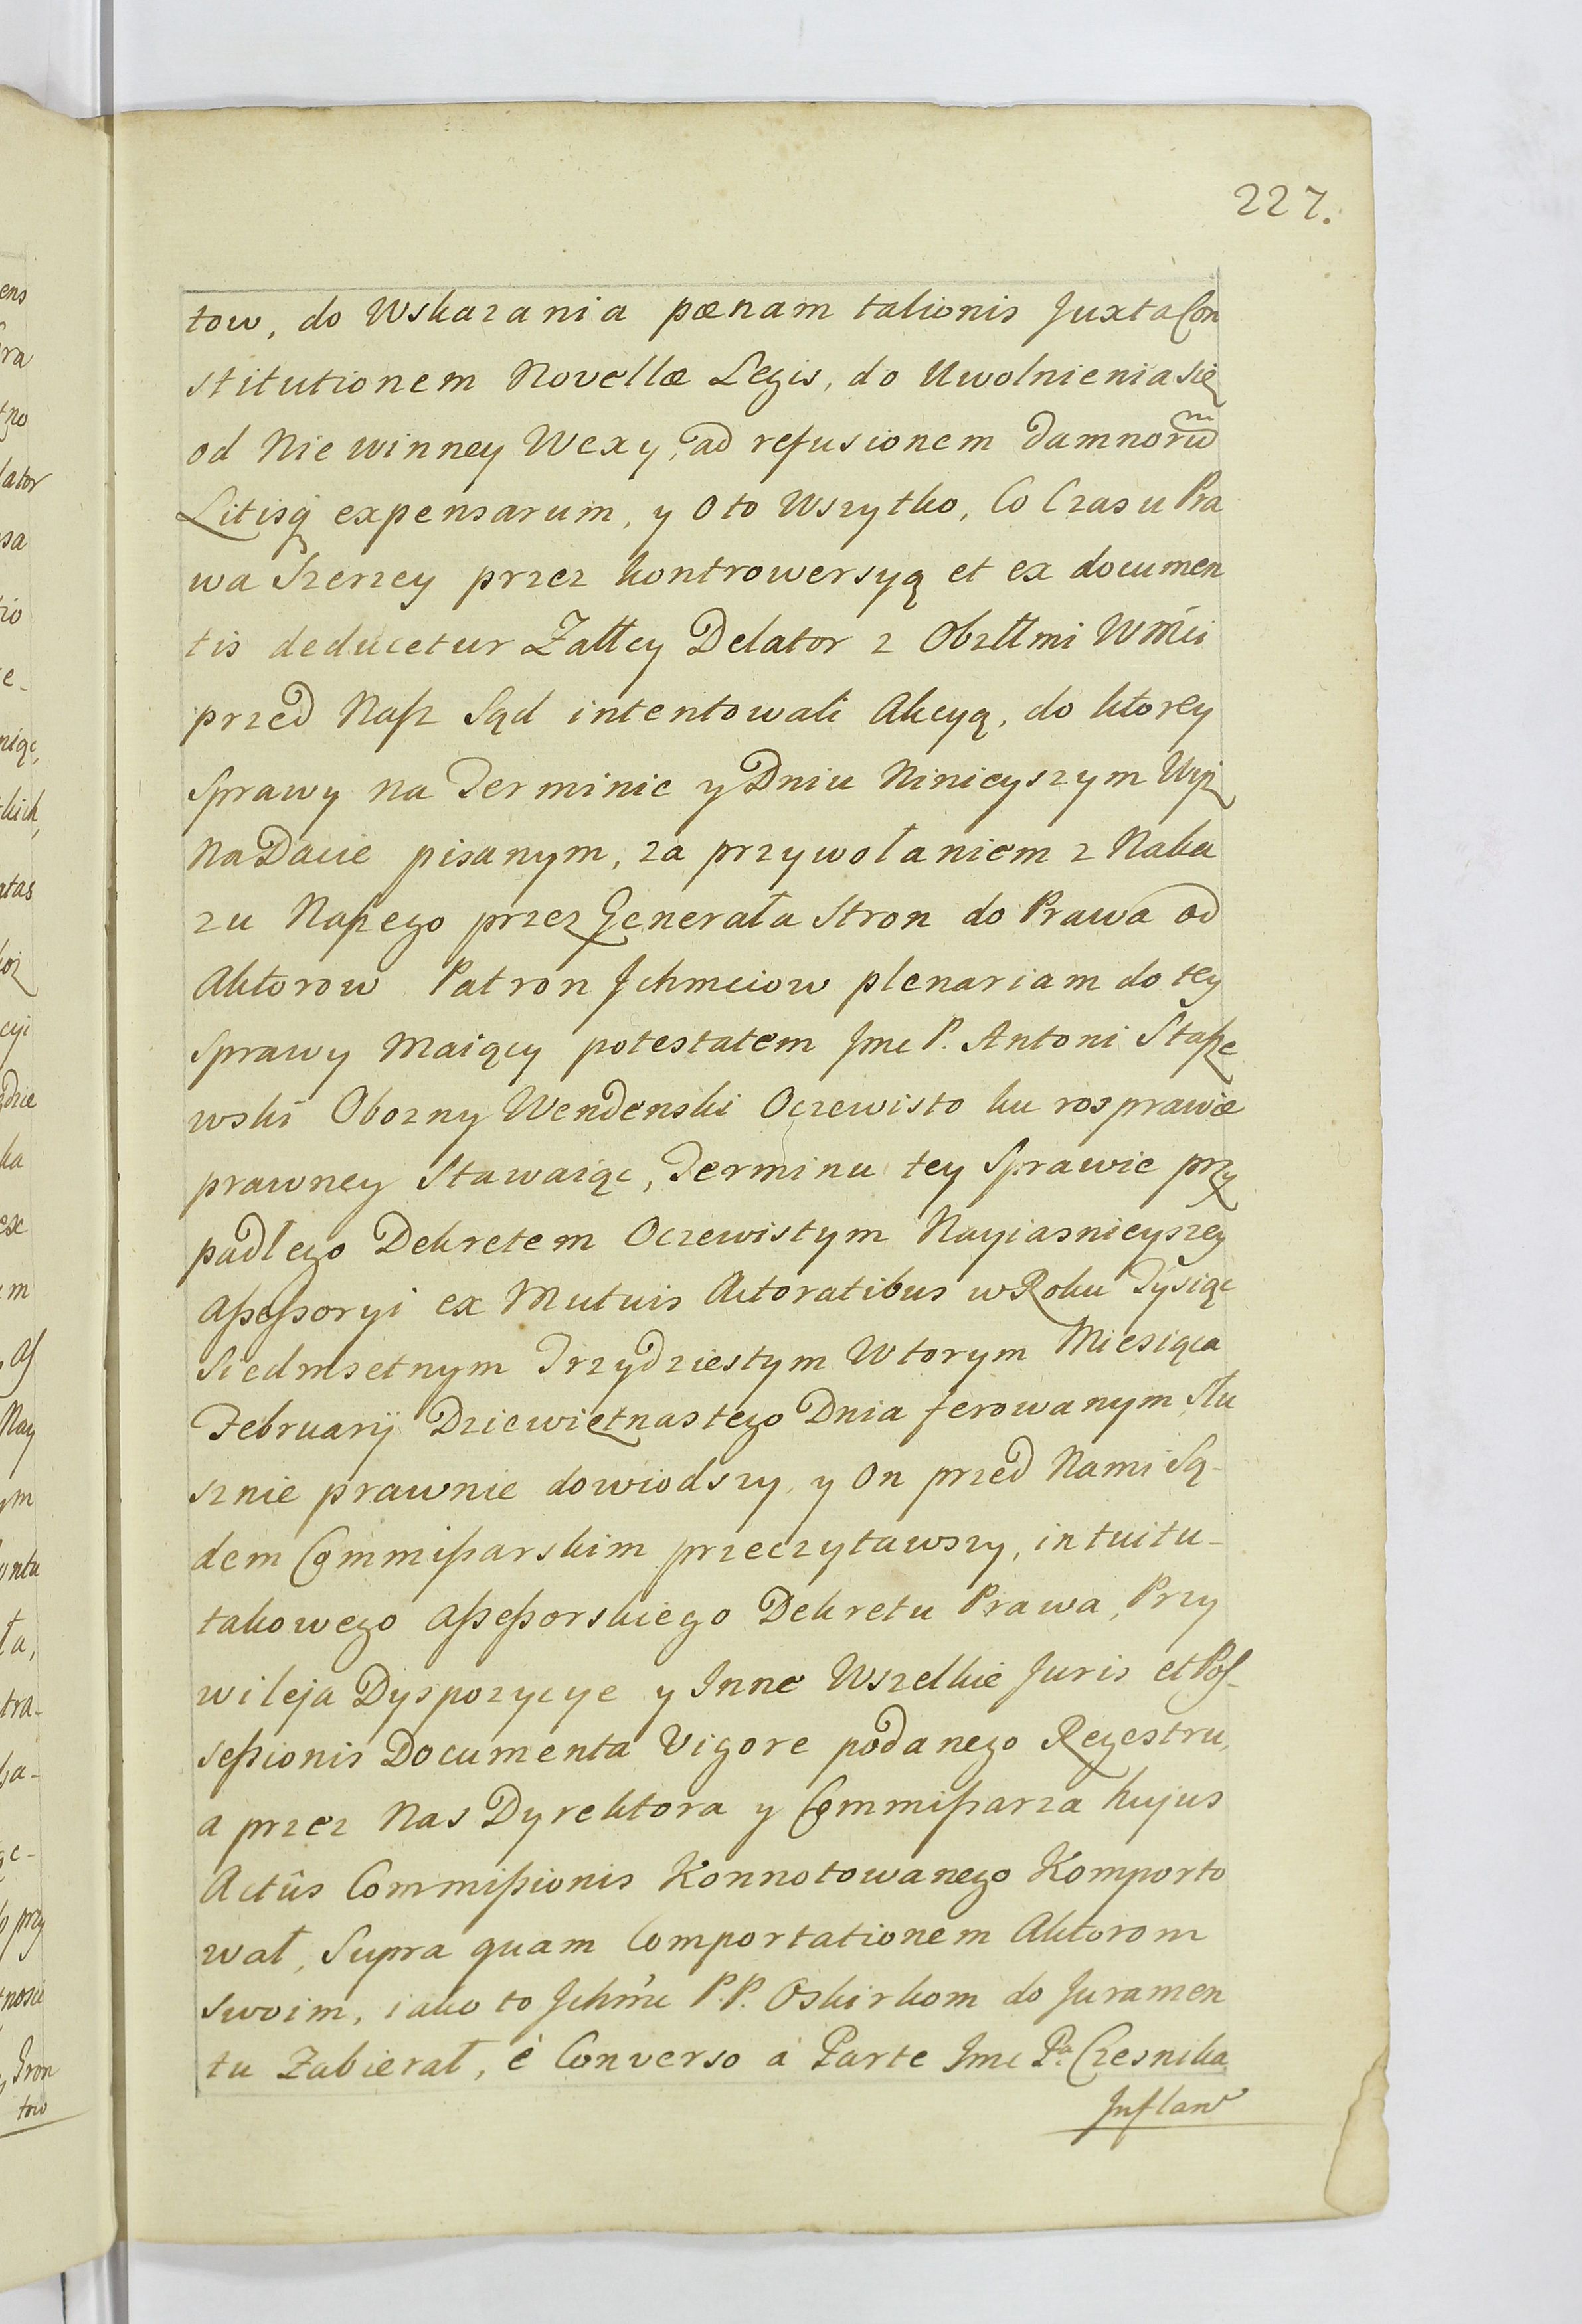 227.
tow, do Wskazania pœnam talionis Juxta Con
stitutionem Novellæ Legis, do Uwolnienia się
od Niewinney Wexy, ad refusionem damnorum
Litisq expensarum, y o to Wszytko, Co Czasu Pra
wa Szerzey przez kontrowersyą et ex documen
tis deducetur Załłcy Delator z Obzłłmi Wmći
przed Nasz Sąd intentowali Akcyą, do ktorey
Sprawy na Terminie y Dniu Ninieyszym Wyż
Na Dacie pisanym, za przywołaniem z Naka
zu Naszego przez Generała Stron do Prawa od
Aktorow Patron Jchmciow plenariam do tey
Sprawy Maiący potestatem Jmc P. Antoni Stasze
wski Obozny Wendenski Oczewisto ku rosprawie
prawney Stawaiąc, Terminu tey Sprawie przy
padłego Dekretem Oczewistym Nayiasnieyszey
Assessoryi ex Mutuis Actoratibus w Roku Tysiąc
Siedmsetnym Trzydziestym Wtorym Miesiąca
Februarij Dziewiętnastego Dnia ferowanym Słu
sznie prawnie dowiodszy, y On przed Nami Są-
dem Commissarskim przeczytawszy, intuitu-
takowego Assessorskiego Dekretu Prawa, Przy
wileja Dyspozycye y Inne Wszelkie Juris et Pos-
sessionis Documenta Vigore podanego Regestru,
a przez Nas Dyrektora y Commissarza hujus
Actûs Commissionis Konnotowanego Komporto
wał, Supra quam Comportationem Aktorom
swoim, iako to Jchmć P.P. Oskirkom do Juramen
tu Zabierał, è Converso à Parte Jmc Pa Czesnika
Inflan